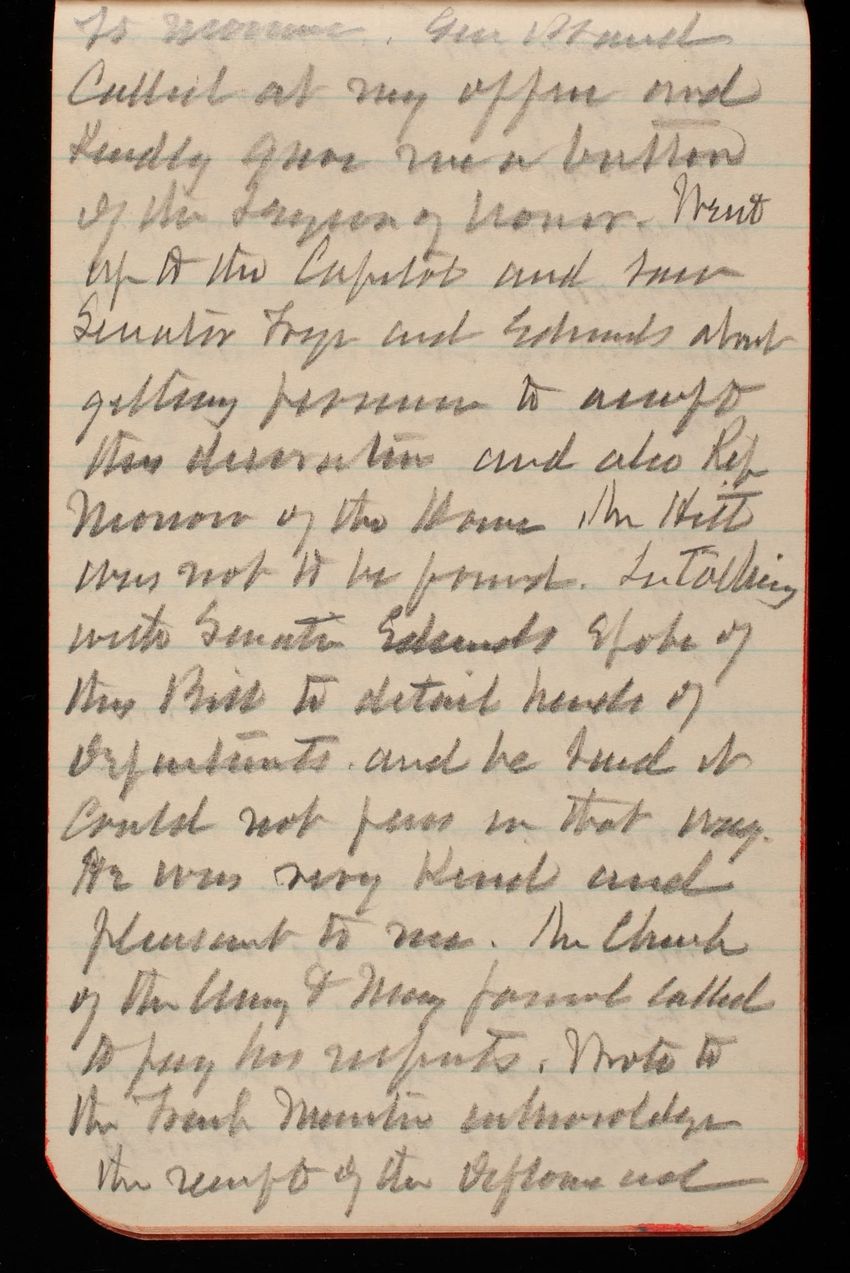 to . Gen
Called at my office and
Kindly gave me a button
of the Legion of honor. Went
up to the Capitol and saw
Senator Frye and Edmunds about
getting permission to accept
this decoration and also Rep
Morrow of the House Mr Hitt
was not to be found. In talking
with Senator Edmunds Spoke of
this Bill to detail heads of
Departments and he said it
Could not pass in that way.
He was very Kind and
pleasant to me. The
of the Army & Navy called
to pay his respects. Wrote to
the French Minister acknowledge
the receipt of the Diploma and